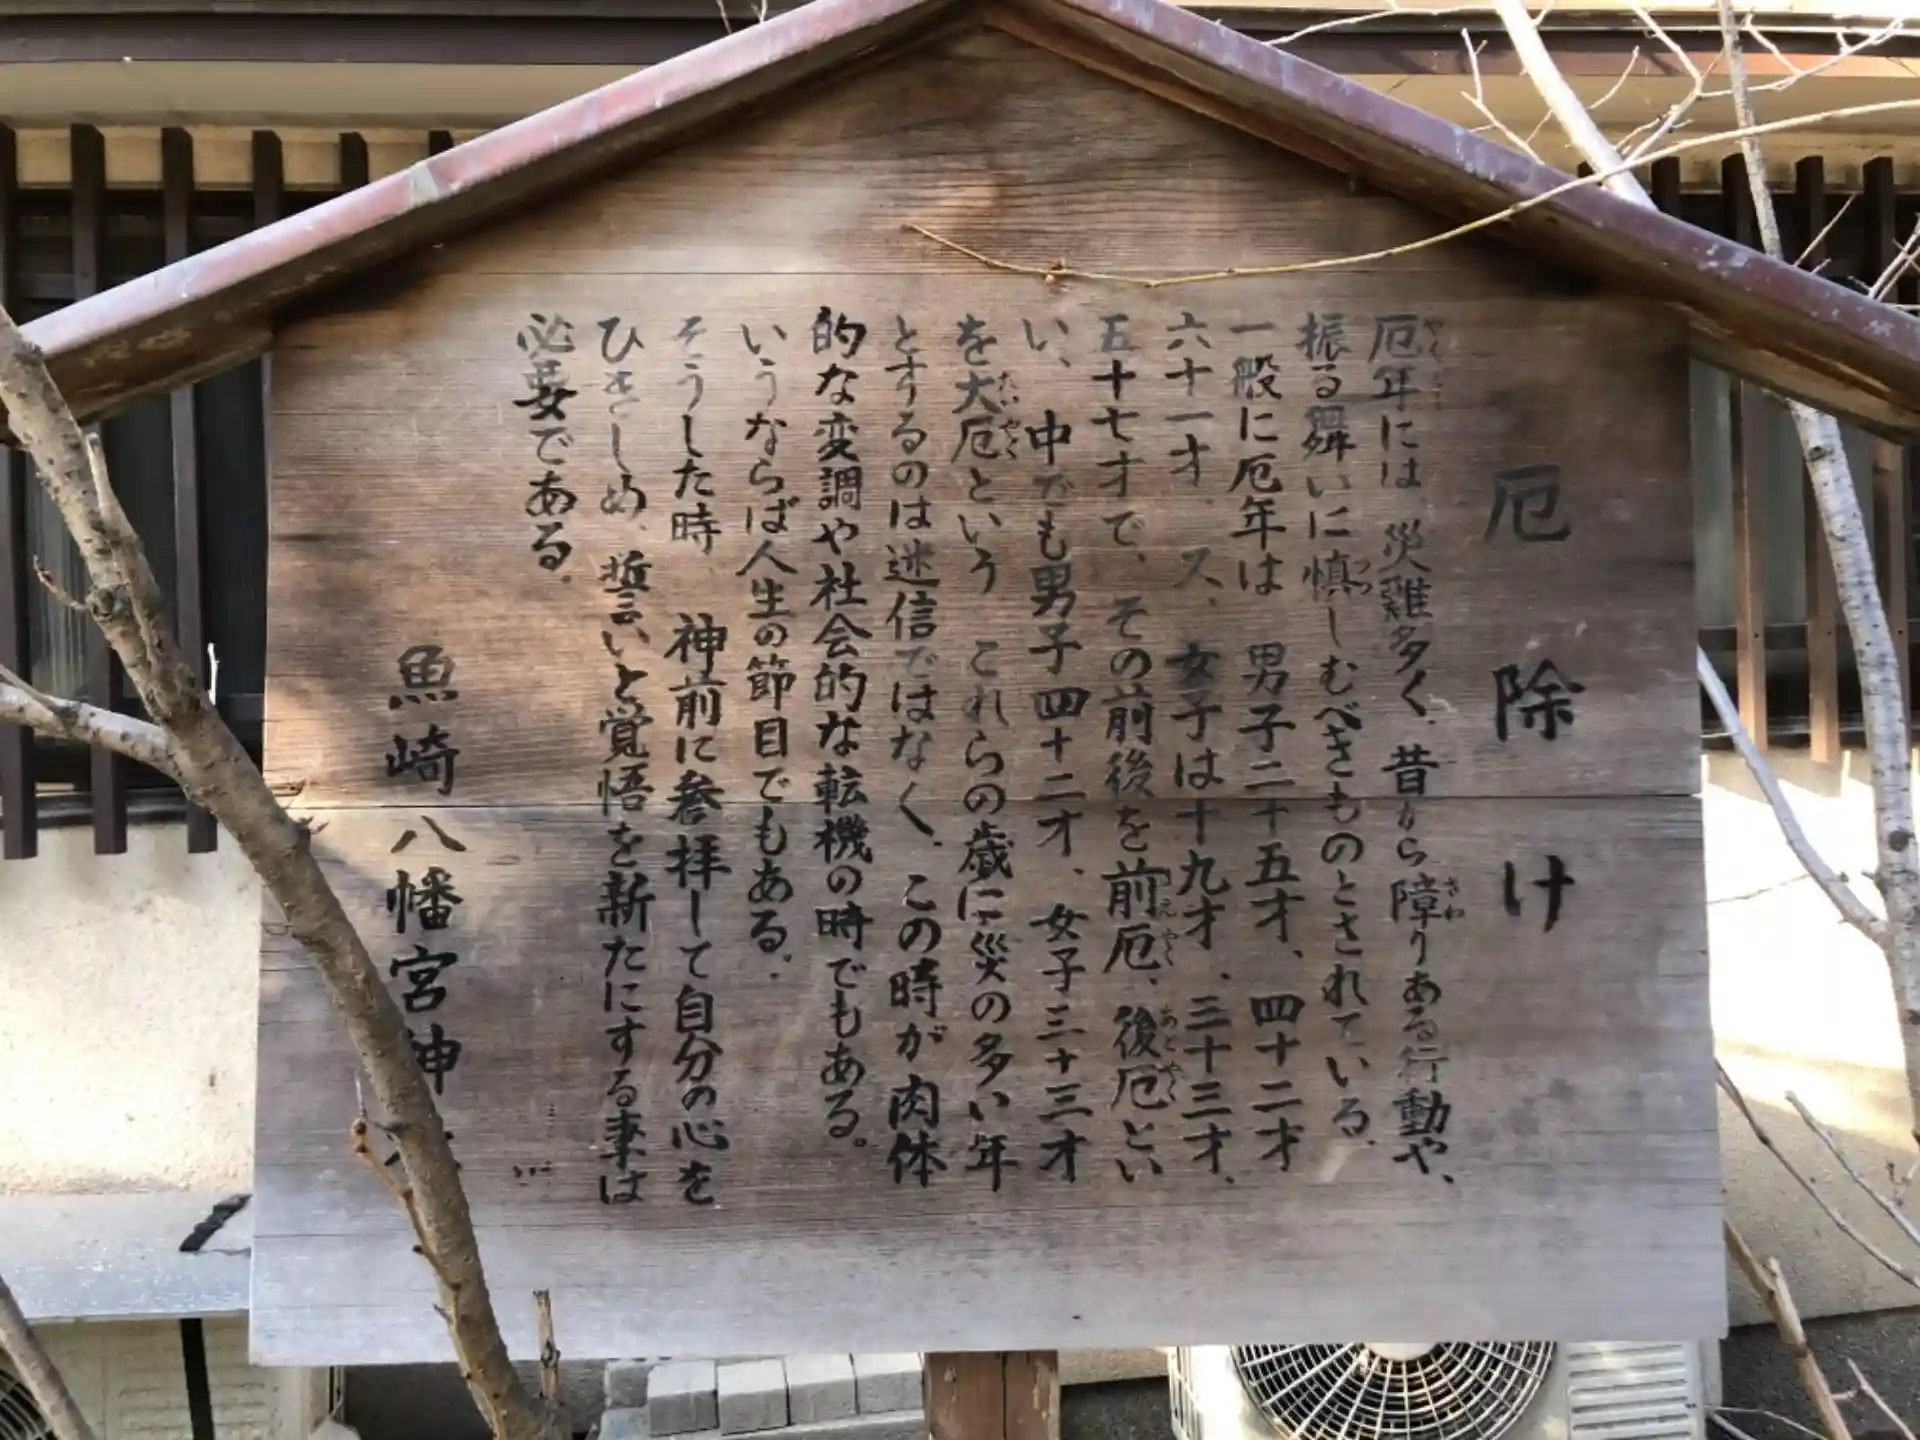 厄除け
厄年には、災難多く、昔から障りある行動や、
振る舞いに慎しむべきものとされている。
一般に厄年は、男子二十五才、四十二才
六十一才、又、女子は十九才、三十三才、
五十七才で、その前後を前厄、後厄とい
い、中でも男子四十二才、女子三十三才
を大厄という。これらの歳に災の多い年
とするのは迷信ではなく、この時が肉体
的な変調や社会的な転機の時でもある。
いうならば人生の節目でもある。
そうした時、神前に参拝して自分の心を
ひきしめ、誓いと覚悟を新たにする事は
必要である。
魚崎八幡宮神